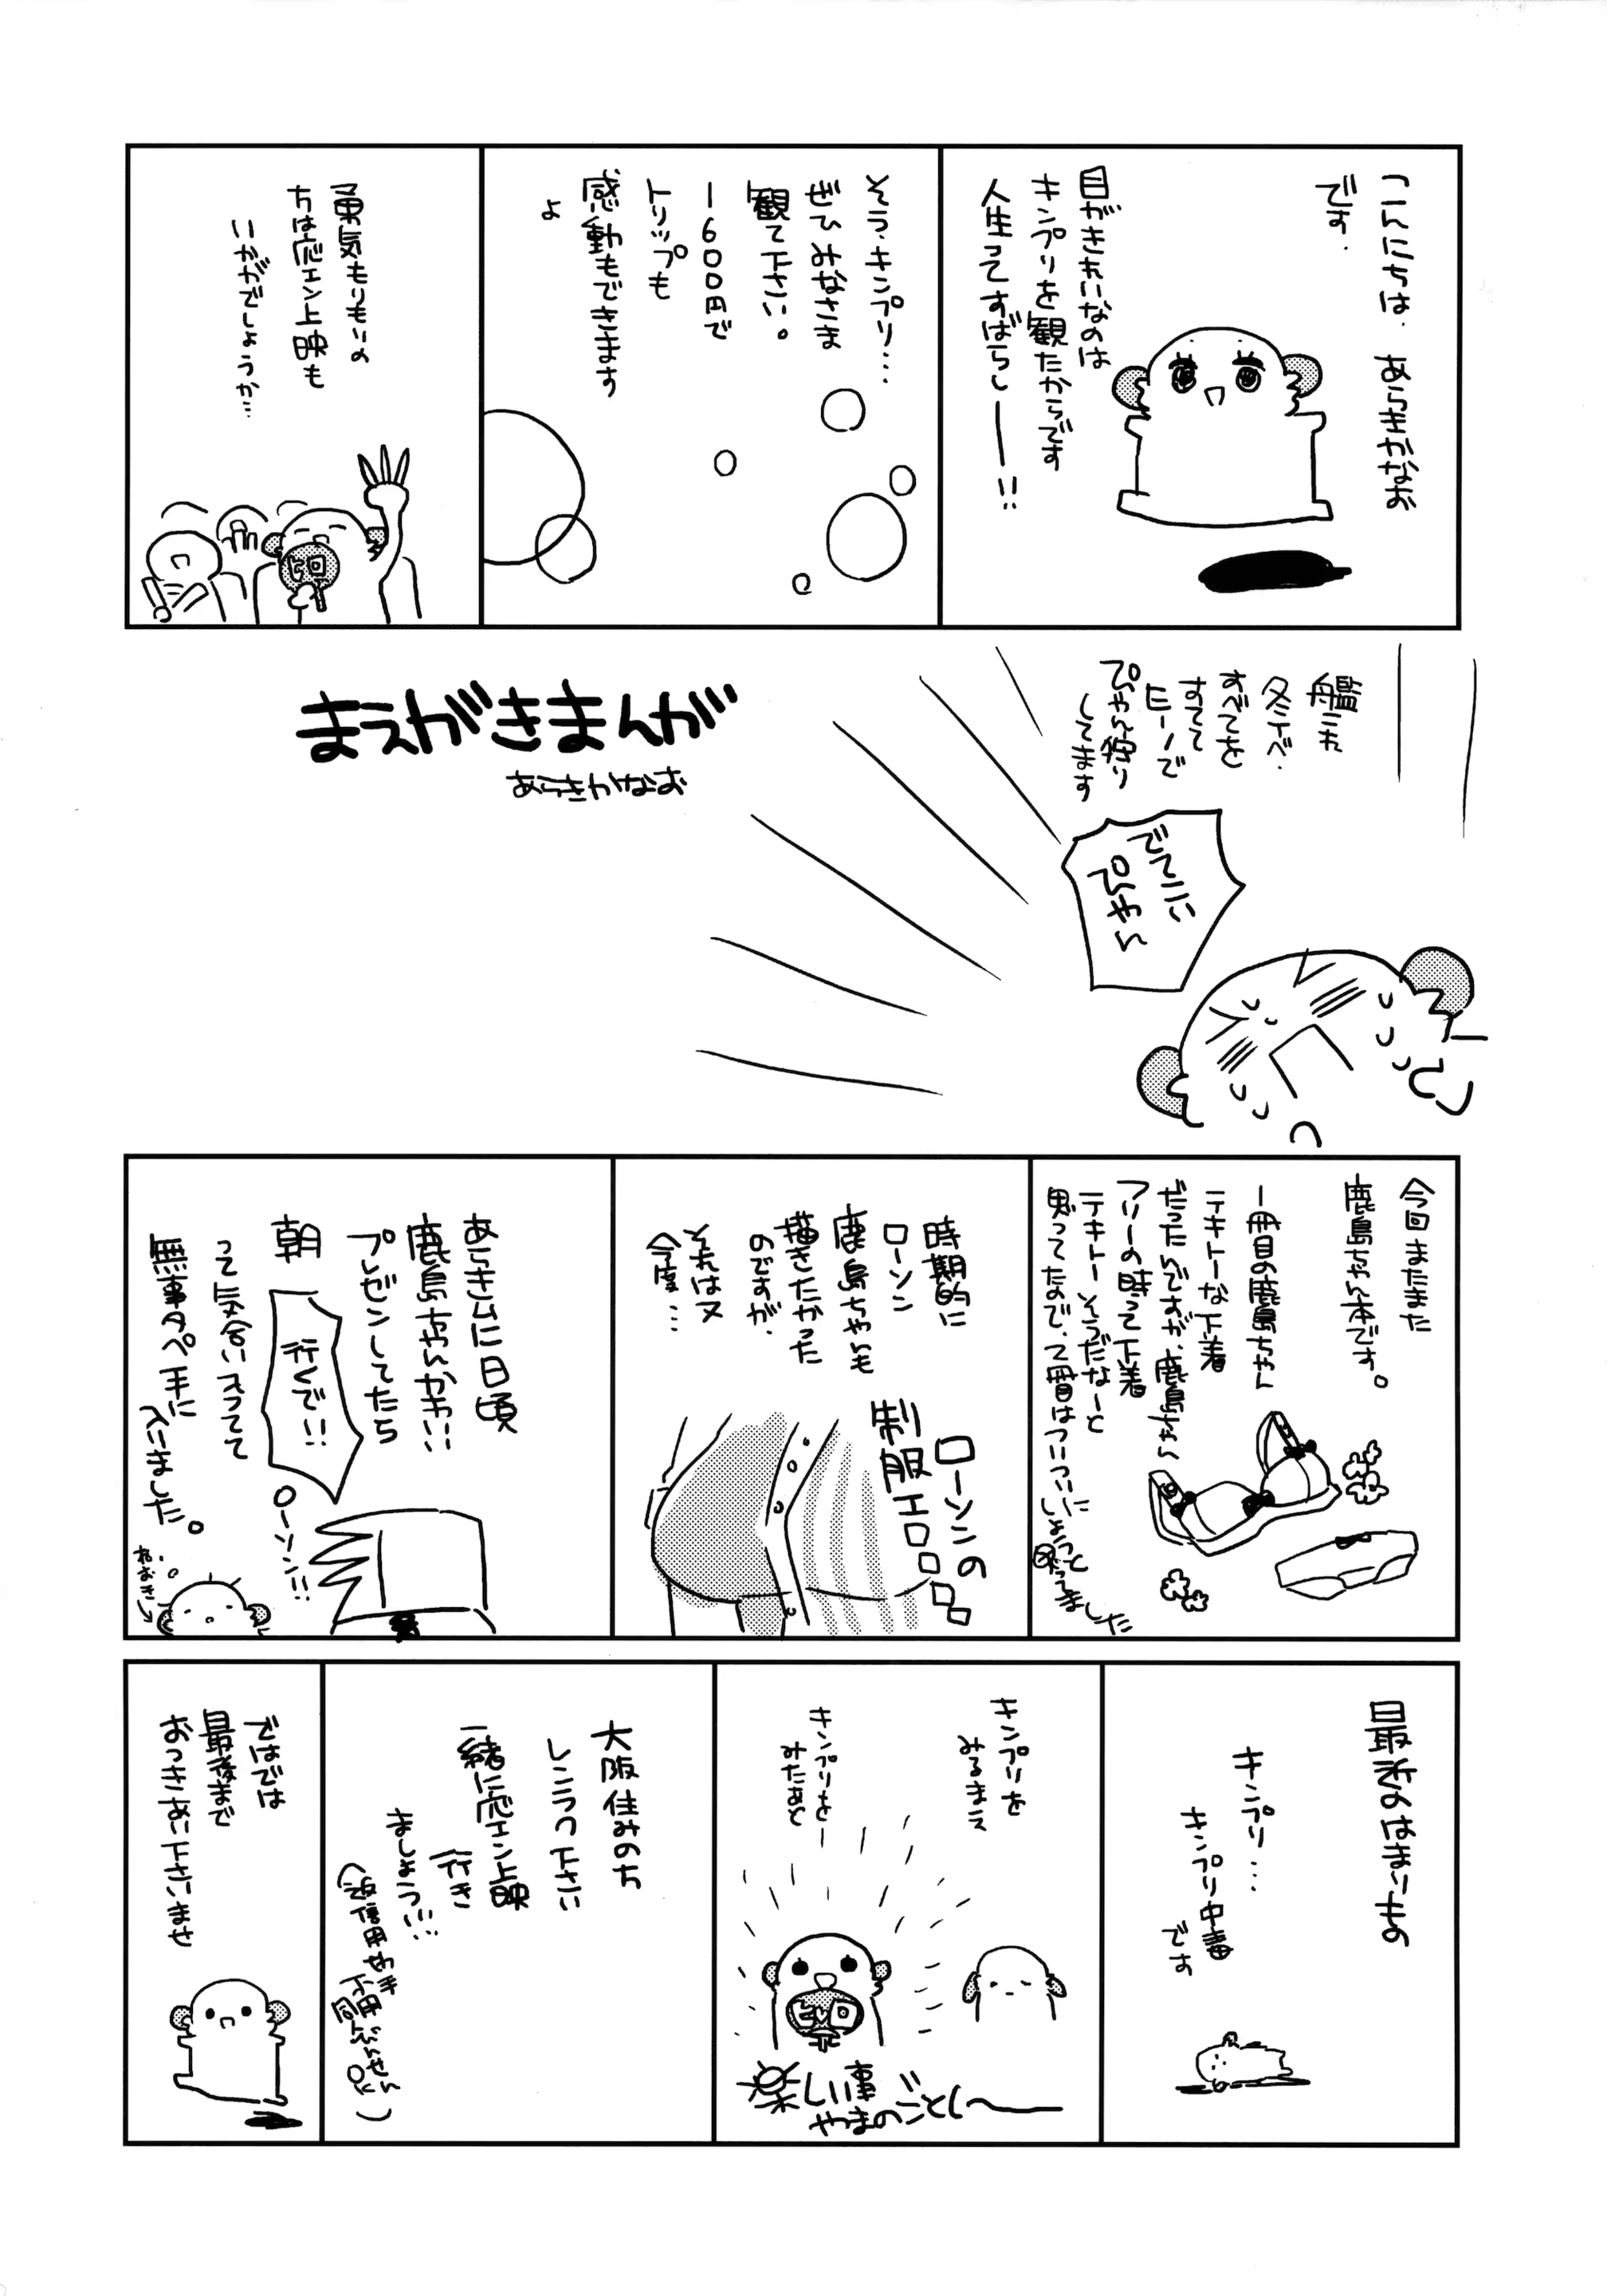 こんにちは. あらきかなお
です.
目がきれいなのは
キンプリを観たからです
人生ってすばらしー!!
そう、キンプリ…
ぜひみなさま
観て下さい。
1600円で
トリップも
感動もできます
よ
勇気もりもりの
方は応エン上映も
いかがでしょうか…
艦これ
冬イベ.
すべてを
すてて
ヒーノで
ぴゃん狩り
してます
でてこい
ぴゃん
まえがきまんが
あらきかなお
今回またまた
鹿島ちゃん本です。
一冊目の鹿島ちゃん
テキトーな下着
だったんですが、鹿島ちゃん
フリーの時って下着
テキトーそうだなーと
思ってたので、2冊目はついついに
しょうと
ってました
時期的に
ローソン
鹿島ちゃんも
描きたかった
のですが、
それは又
今度…
ローソンの
制服エロロロロロ
あらきムに日頃
鹿島ちゃんかわいい
プレゼンしてたら
朝
行くで!!
ローソン!!
って気合い入ってて
無事タペ手に
入りました。
ねおき
最近のはまりもの
キンプリ…
キンプリ中毒
です
キンプリを
みるまえ
キンプリをー
みたあと
ヒロ
楽しい事
やまのごとし〜
大阪住みの方
レンラク下さい
一緒に応エン上映
行き
ましょう!!…
(返信用切手
不用
同人びんせん
OK)
ではでは
最後まで
おつきあい下さいませ